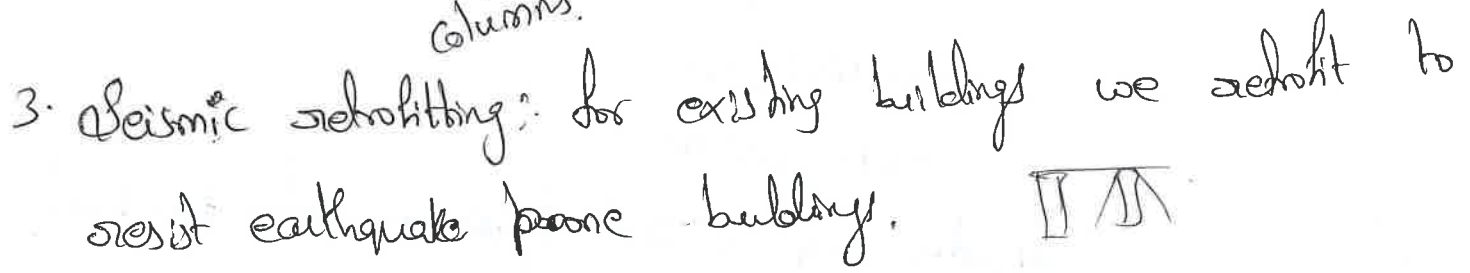 columns.
3. Seismic retrofitting: for existing buildings we retrofit to
resist earthquake prone buildings.